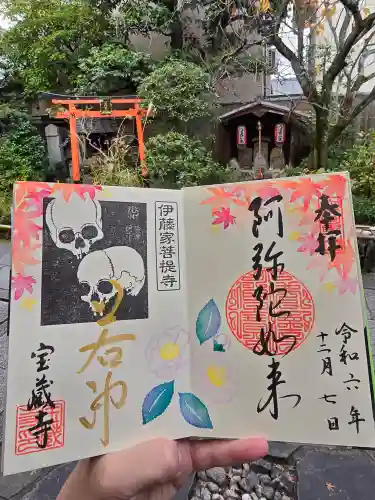 奉拝
阿弥陀如来
令和六年
十二月七日
伊藤家菩提寺
若冲
宝蔵寺